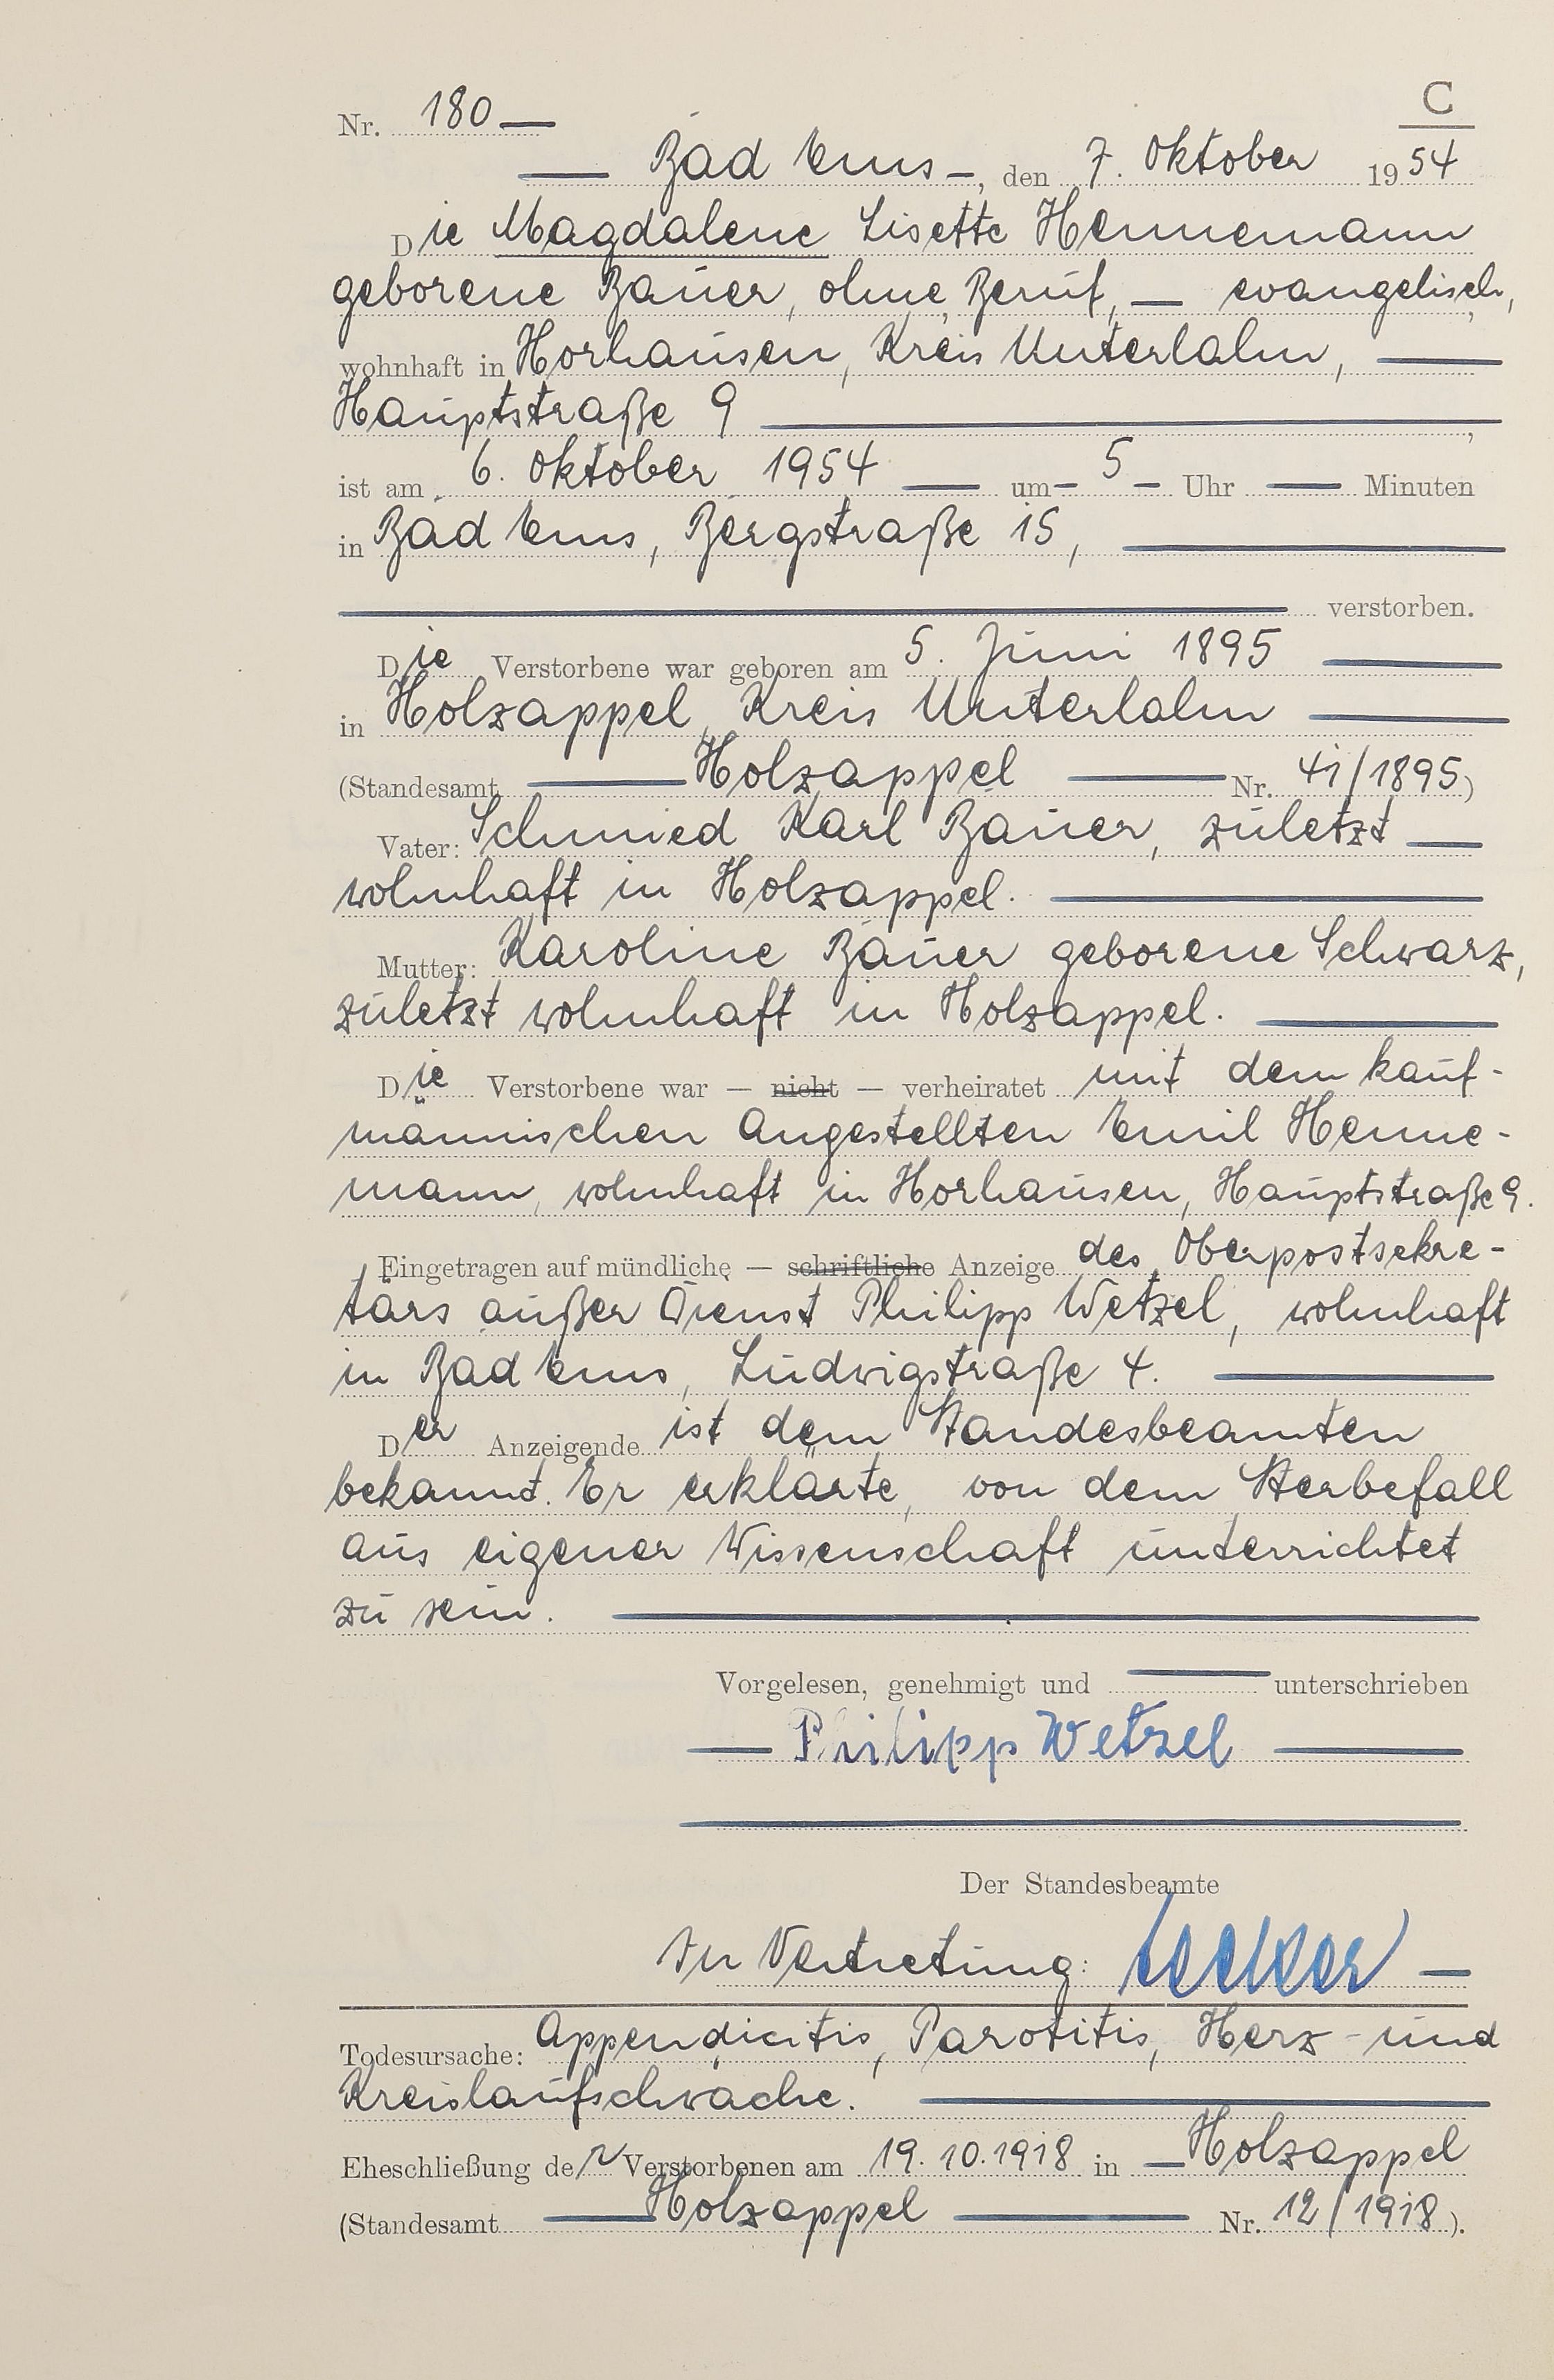 C
Nr. 180 —
— Bad Ems —, den 7. Oktober 1954
Die Magdalene Lisette Hennemann
geborene Bauer, ohne Beruf, — evangelisch,
wohnhaft in Horhausen, Kreis Unterlahn, —
Hauptstraße 9 —,
ist am 6. Oktober 1954 — um — 5 — Uhr — Minuten
in Bad Ems, Bergstraße 15, —
— verstorben.
Die Verstorbene war geboren am 5. Juni 1895 —
in Holzappel, Kreis Unterlahn —
(Standesamt — Holzappel — Nr. 41/1895)
Vater: Schmied Karl Bauer, zuletzt —
wohnhaft in Holzappel. —
Mutter: Karoline Bauer geborene Schwarz,
zuletzt wohnhaft in Holzappel. —
Die Verstorbene war — nicht — verheiratet mit dem kauf-
männischen Angestellten Emil Henne-
mann, wohnhaft in Horhausen, Hauptstraße 9.
Eingetragen auf mündliche — schriftliche Anzeige des Oberpostsekre-
tärs außer Dienst Philipp Wetzel, wohnhaft
in Bad Ems, Ludwigstraße 4. —
Der Anzeigende ist dem Standesbeamten
bekannt. Er erklärte, von dem Sterbefall
aus eigener Wissenschaft unterrichtet
zu sein. —
Vorgelesen, genehmigt und — unterschrieben
— Philipp Wetzel —
Der Standesbeamte
In Vertretung: —
Todesursache: Appendicitis, Parotitis, Herz- und
Kreislaufschwäche. —
Eheschließung der Verstorbenen am 19.10.1918 in — Holzappel
(Standesamt — Holzappel — Nr. 12/1918).